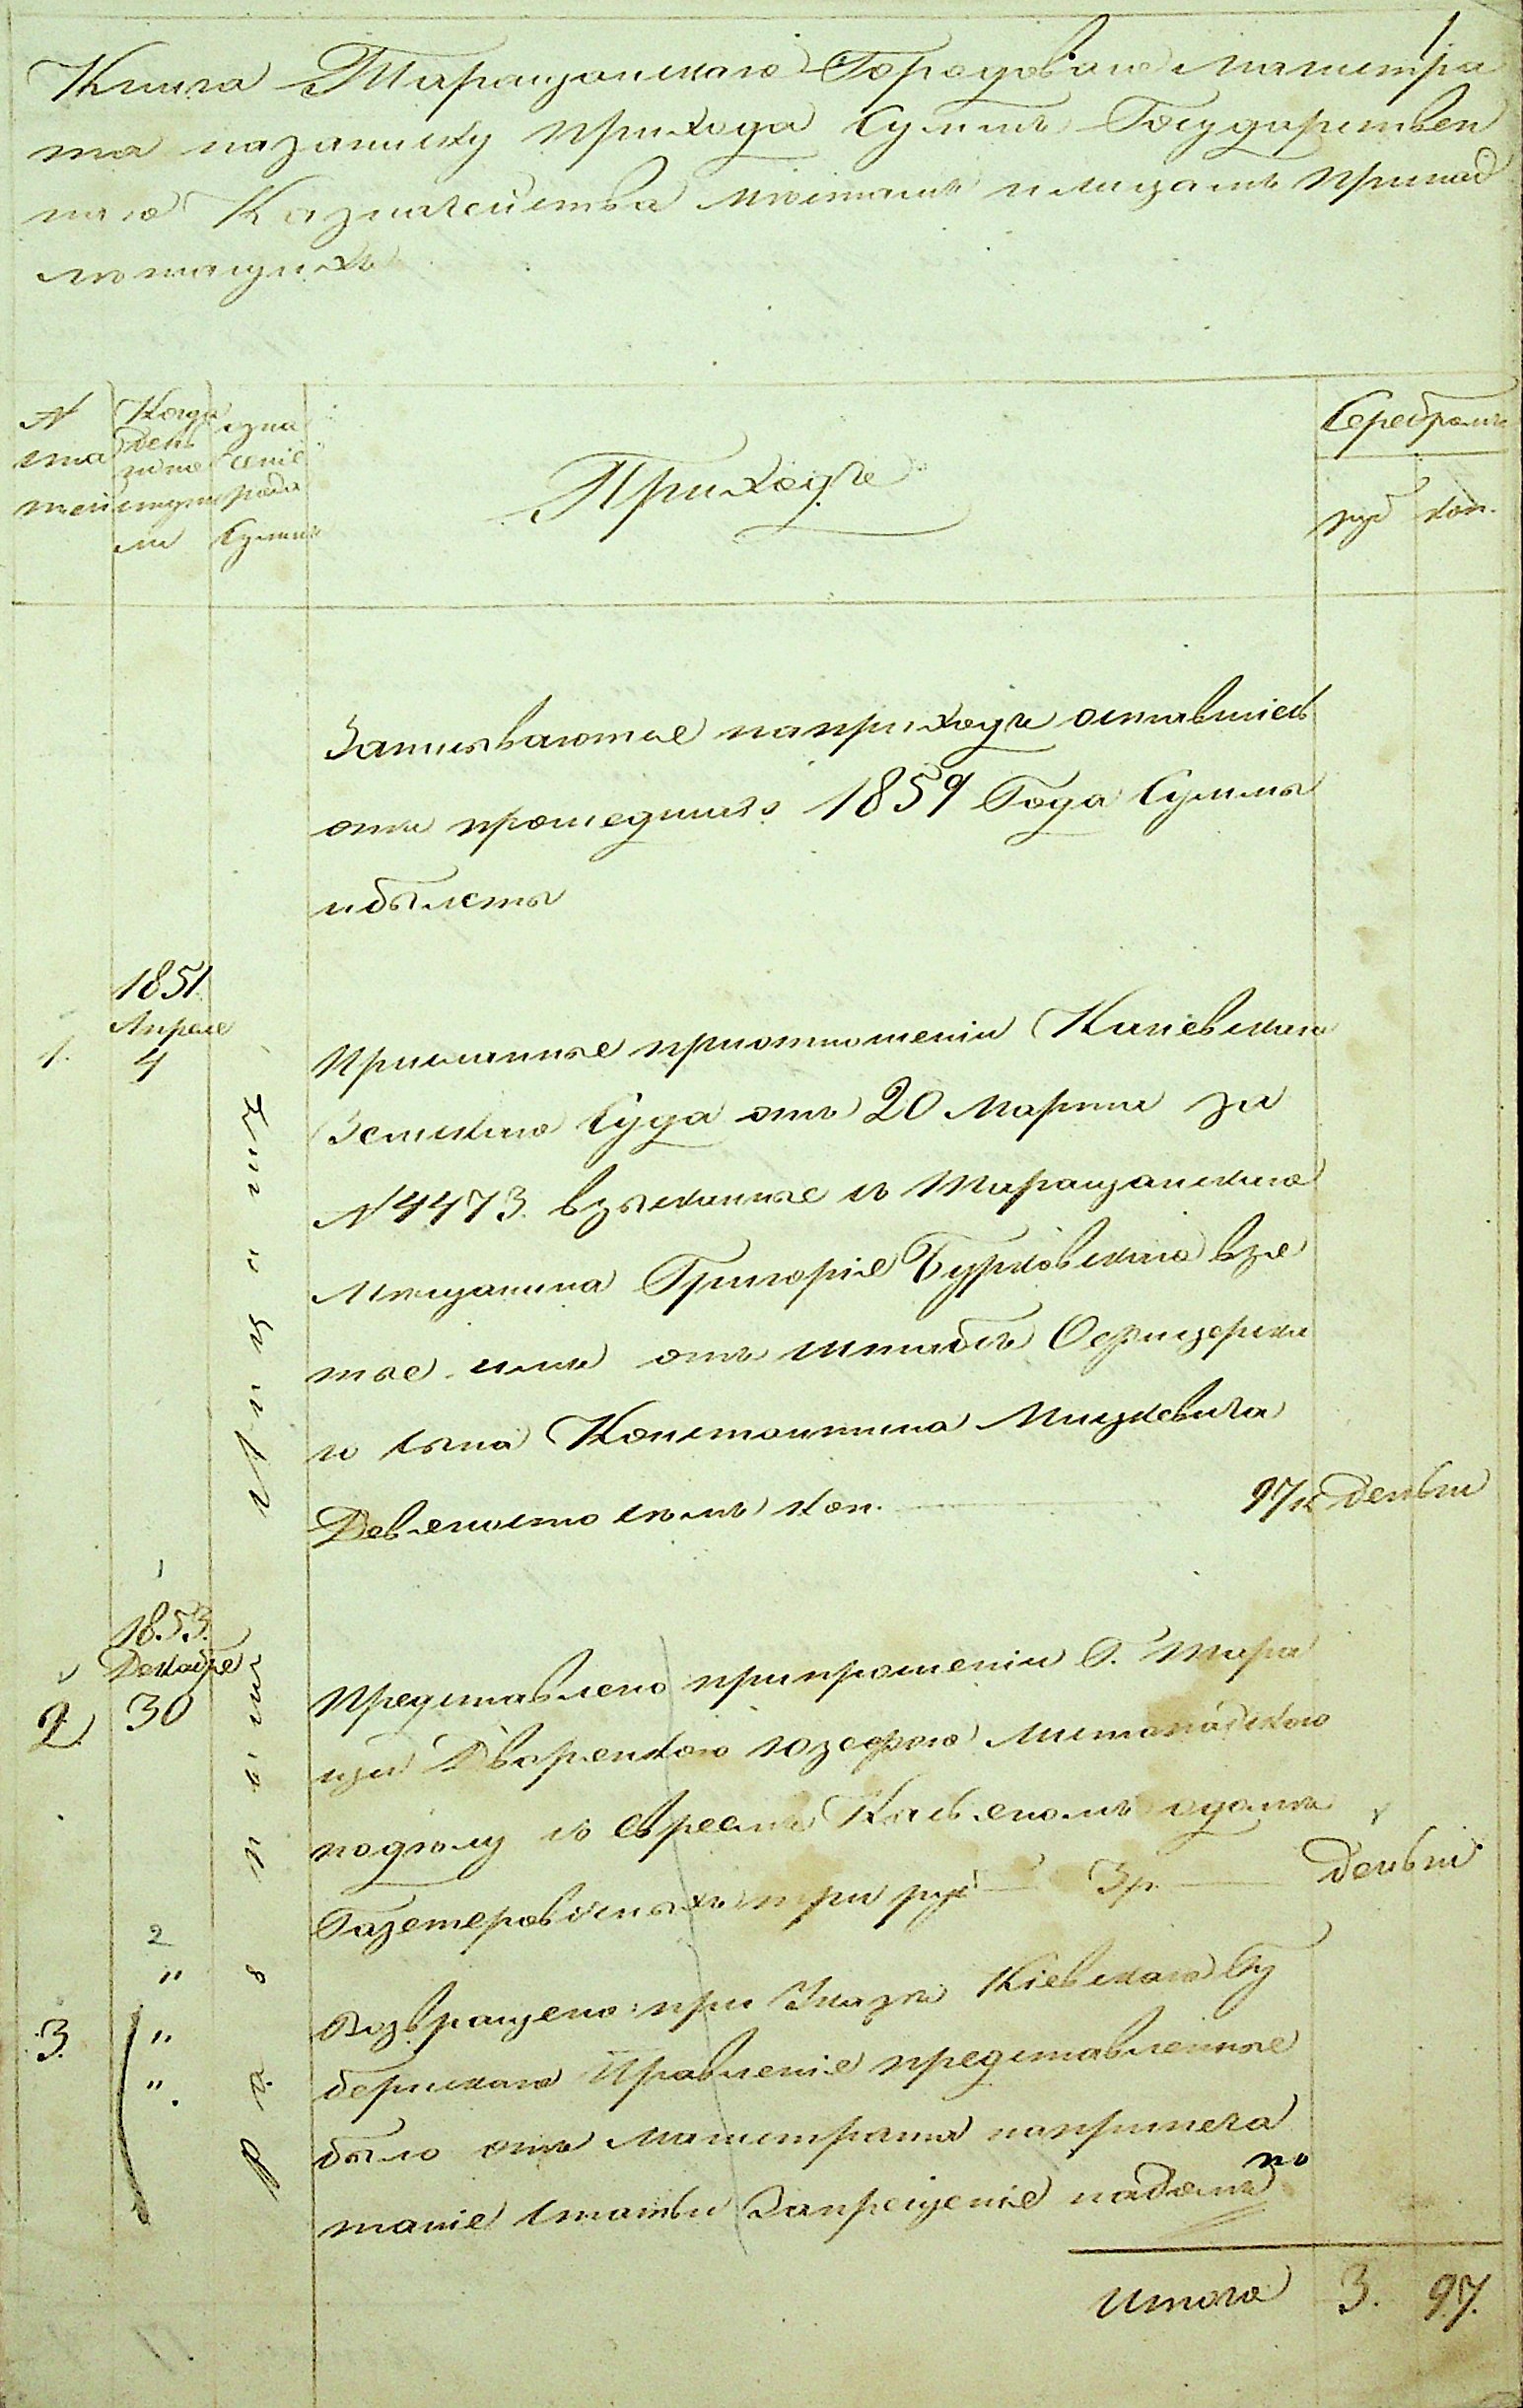 1
Книга Таращанскаго Городоваго Магистра
та на записку прихода Суммъ Государствен
наго Казначейства местамъ и лицамъ принад
лежащихъ
N
ста
тей
Когда
посту
пи
ли
озна
ченіе
рода
Суммъ
Приходъ
Серебромъ
руб коп.
Записываютъсе на приходъ оставшіесь
отъ прошедшаго 1859 Года Суммы
и билеты
1851.
Апреле
1. 4
Присланные при отношеніи Каневскаго
Земскаго Суда отъ 20 Марта за
N 4473. взысканные съ Таращанскаго
Мещанина Григоріе Бурковскаго взе
тые имъ отъ штабъ Офицерска
го сына Константина Мицкевича
Девеносто семъ коп. 97 к деньги
1
1853.
Декабре
2. 30
Представлено при прошеніи Г. Тара
щи Дворенкою Юзефою
по делу съ евреемъ
три руб 3 р. деньги
2
"
3. "
"
Возвращено при Указе Кіевскаго Гу
бернскаго Правленіе представленные
было отъ Магистрата на припеча
таніе статьи Запрещеніе на домъ
по
Итого 3. 97.